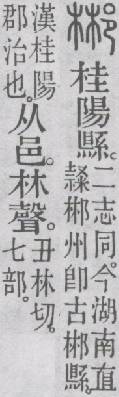 郴桂陽縣。二志同。今湖南直
𨽻郴州卽古郴縣。
漢桂陽
郡治也。从邑。林聲。丑林切。
七部。